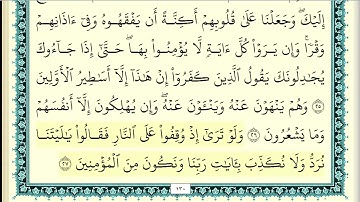 إِلَيۡكَۖ وَجَعَلۡنَا عَلَىٰ قُلُوبِهِمۡ أَكِنَّةً أَن يَفۡقَهُوهُ وَفِيٓ ءَاذَانِهِمۡ
وَقۡرٗاۚ وَإِن يَرَوۡاْ كُلَّ ءَايَةٖ لَّا يُؤۡمِنُواْ بِهَاۖ حَتَّىٰٓ إِذَا جَآءُوكَ
يُجَٰدِلُونَكَ يَقُولُ ٱلَّذِينَ كَفَرُوٓاْ إِنۡ هَٰذَآ إِلَّآ أَسَٰطِيرُ ٱلۡأَوَّلِينَ
٢٥ وَهُمۡ يَنۡهَوۡنَ عَنۡهُ وَيَنۡـَٔوۡنَ عَنۡهُۖ وَإِن يُهۡلِكُونَ إِلَّآ أَنفُسَهُمۡ
وَمَا يَشۡعُرُونَ ٢٦ وَلَوۡ تَرَىٰٓ إِذۡ وُقِفُواْ عَلَى ٱلنَّارِ فَقَالُواْ يَٰلَيۡتَنَا
نُرَدُّ وَلَا نُكَذِّبَ بِـَٔايَٰتِ رَبِّنَا وَنَكُونَ مِنَ ٱلۡمُؤۡمِنِينَ ٢٧
١٣٠